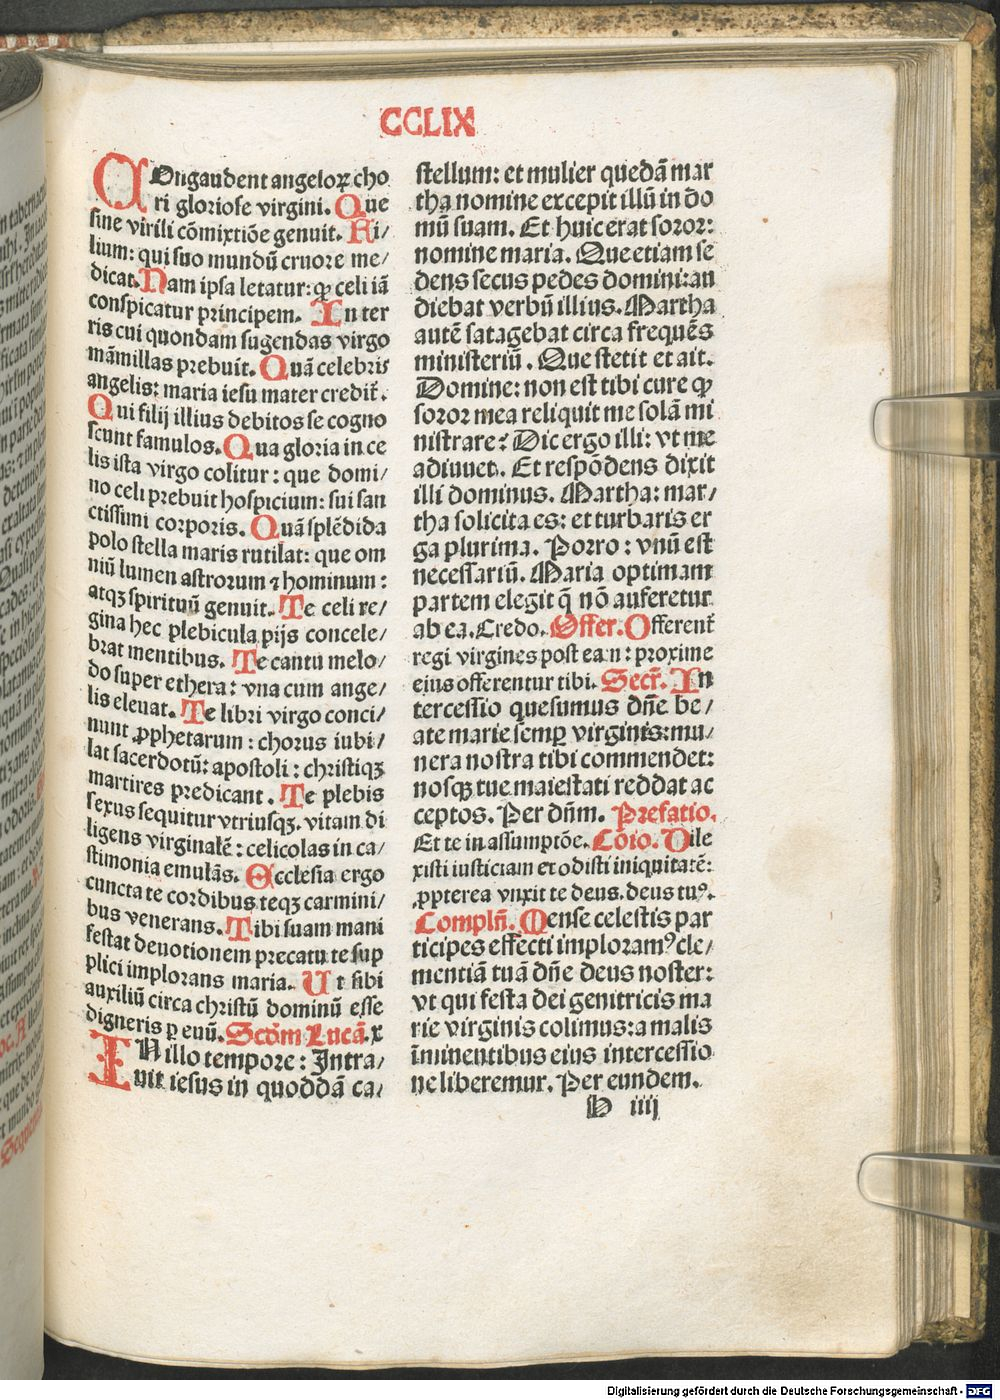 CCLIX
COngaudent angeloꝝ cho
ri gloriose virgini. Que
sine virili cõmixtiõe genuit. Fi/
lium: qui suo mundũ cruore me/
dicat. Nam ipsa letatur: ꝙ celi iã
conspicatur principem. In ter
ris cui quondam sugendas virgo
mãmillas prebuit. Quã celebris
angelis: maria iesu mater credit᷑.
Qui filij illius debitos se cogno
scunt famulos. Qua gloria in ce
lis ista virgo colitur: que domi/
no celi prebuit hospicium: sui san
ctissimi corporis. Quã splẽdida
polo stella maris rutilat: que om
niũ lumen astrorum ⁊ hominum:
atqꝫ spirituũ genuit. Te celi re/
gina hec plebicula pijs concele/
brat mentibus. Te cantu melo/
do super ethera: vna cum ange/
lis eleuat. Te libri virgo conci/
nunt ꝓphetarum: chorus iubi/
lat sacerdotũ: apostoli: christiqꝫ
martires predicant. Te plebis
sexus sequitur vtriusqꝫ. vitam di
ligens virginalẽ: celicolas in ca/
stimonia emulãs. Ecclesia ergo
cuncta te cordibus teqꝫ carmini/
bus venerans. Tibi suam mani
festat deuotionem precatu te sup
plici implorans maria. Ut sibi
auxiliũ circa christũ dominũ esse
digneris ꝑ euũ. Scd̃m Lucã. x
IN illo tempore: Intra/
uit iesus in quoddã ca/
stellum: et mulier quedã mar
tha nomine excepit illũ in do
mũ suam. Et huic erat soror:
nomine maria. Que etiam se
dens secus pedes domini: au
diebat verbũ illius. Martha
autẽ satagebat circa frequẽs
ministeriũ. Que stetit et ait.
Domine: non est tibi cure ꝙ
soror mea reliquit me solã mi
nistrare? Dic ergo illi: vt me
adiuuet. Et respõdens dixit
illi dominus. Martha: mar/
tha solicita es: et turbaris er
ga plurima. Porro: vnũ est
necessariũ. Maria optimam
partem elegit q̃ nõ auferetur
ab ea. Credo. Offer. Offerent᷑
regi virgines post eam: proxime
eius offerentur tibi. Secr̃. In
tercessio quesumus dñe be/
ate marie semꝑ virginis: mu/
nera nostra tibi commendet:
nosqꝫ tue maiestati reddat ac
ceptos. Per dñm. Prefatio.
Et te in assumptõe. Cõio. Dile
xisti iusticiam et odisti iniquitatẽ:
ꝓpterea vnxit te deus. deus tuꝰ.
Complñ. Mense celestis par
ticipes effecti imploramꝰ cle/
mentiã tuã dñe deus noster:
vt qui festa dei genitricis ma
rie virginis colimus: a malis
ĩminentibus eius intercessio
ne liberemur. Per eundem.
h iiij
Digitalisierung gefördert durch die Deutsche Forschungsgemeinschaft - DFG